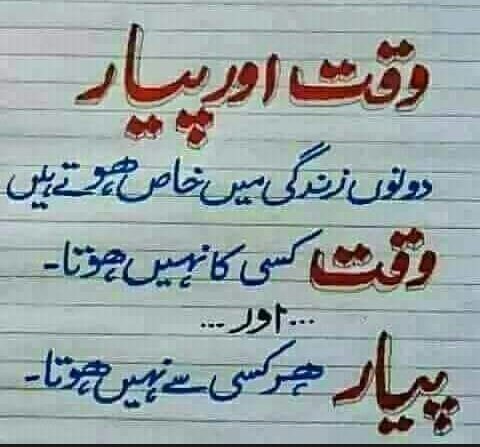 وقت اور پیار
دونوں زندگی میں خاص ہوتے ہیں
وقت کسی کا نہیں ہوتا۔
... اور ...
پیار ہر کسی سے نہیں ہوتا۔